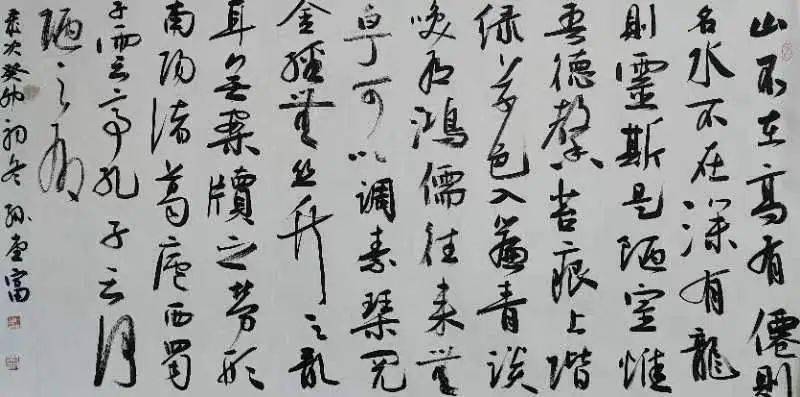 山不在高有僊則
名水不在深有龍
則靈斯是陋室惟
吾德馨苔痕上階
绿草色入簾青谈
咲有鴻儒往来無
白丁可以调素琴阅
金經無丝竹之亂
耳無案牘之勞形
南阳诸葛廬西蜀
子雲亭孔子云何
陋之有
歲次癸卯初冬孙富